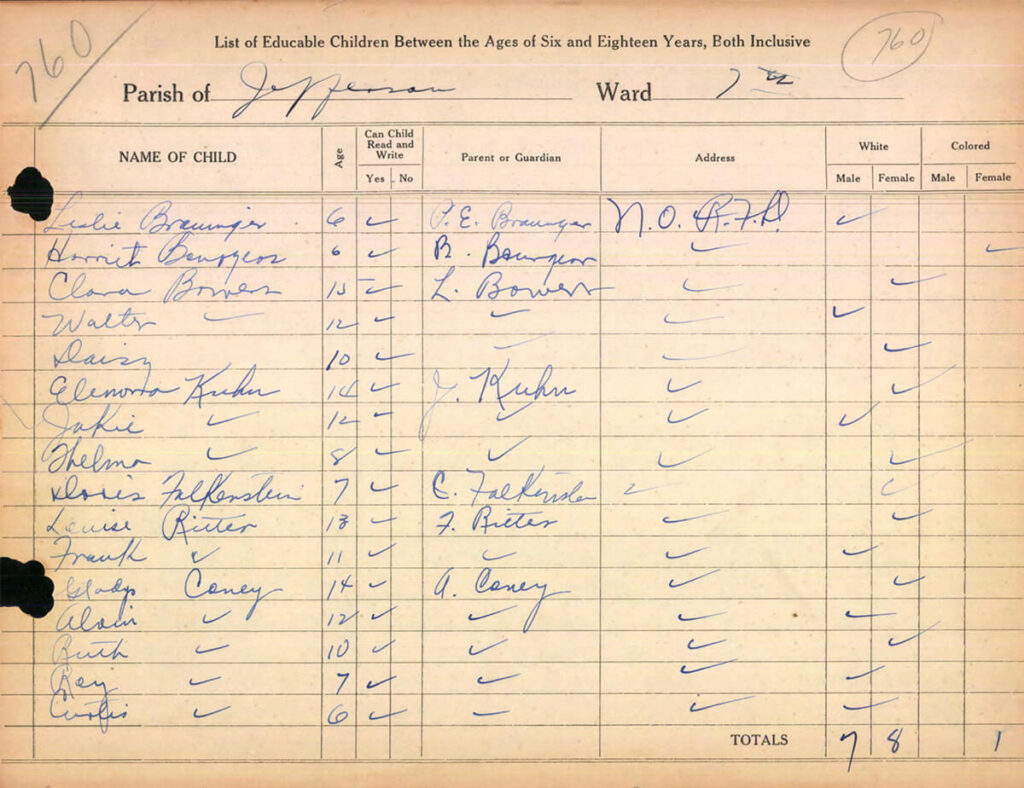 760
List of Educable Children Between the Ages of Six and Eighteen Years, Both Inclusive
760
Parish of Jefferson Ward 7th
NAME OF CHILD Age Can Child Read and Write Parent or Guardian Address White Colored
Yes No Male Female Male Female
Leslie 6 ✓ P. E. N.O. R.F.D. ✓
Harriet Bourgeois 6 ✓ B. Bourgeois ✓ ✓
Clara Bowers 15 ✓ L. Bowers ✓ ✓
Walter ✓ 12 ✓ ✓ ✓ ✓
Daisy 10 ✓ ✓ ✓ ✓
Elenora Kuhn 14 ✓ J. Kuhn ✓ ✓
Jakie ✓ 12 ✓ ✓ ✓ ✓
Thelma ✓ 8 ✓ ✓ ✓ ✓
Doris Falkenstein 7 ✓ C. Falkenstein ✓ ✓
Louise Ritter 13 ✓ F. Ritter ✓ ✓
Frank ✓ 11 ✓ ✓ ✓ ✓
Gladys Caney 14 ✓ A. Caney ✓ ✓
Alvin ✓ 12 ✓ ✓ ✓ ✓
Ruth ✓ 10 ✓ ✓ ✓ ✓
Ray ✓ 7 ✓ ✓ ✓ ✓
Curtis ✓ 6 ✓ ✓ ✓ ✓
TOTALS 7 8 1